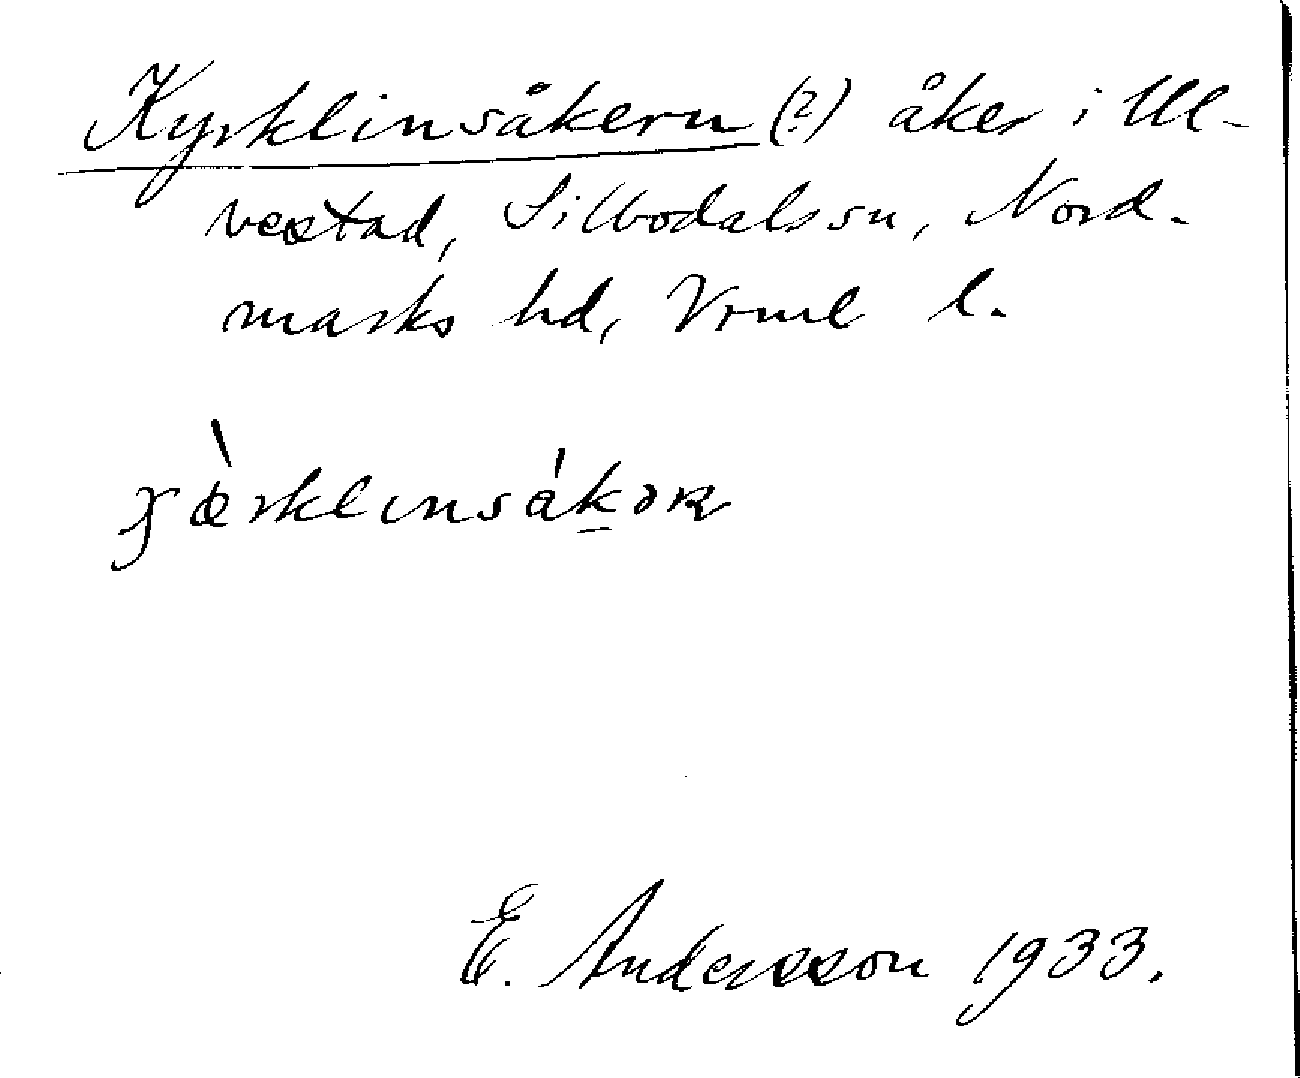 Kyrklinsåkern (?) åker i Ul-
vestad, Silbodals sn, Nord-
marks hd, Vrml l.
E. Andersson 1933.